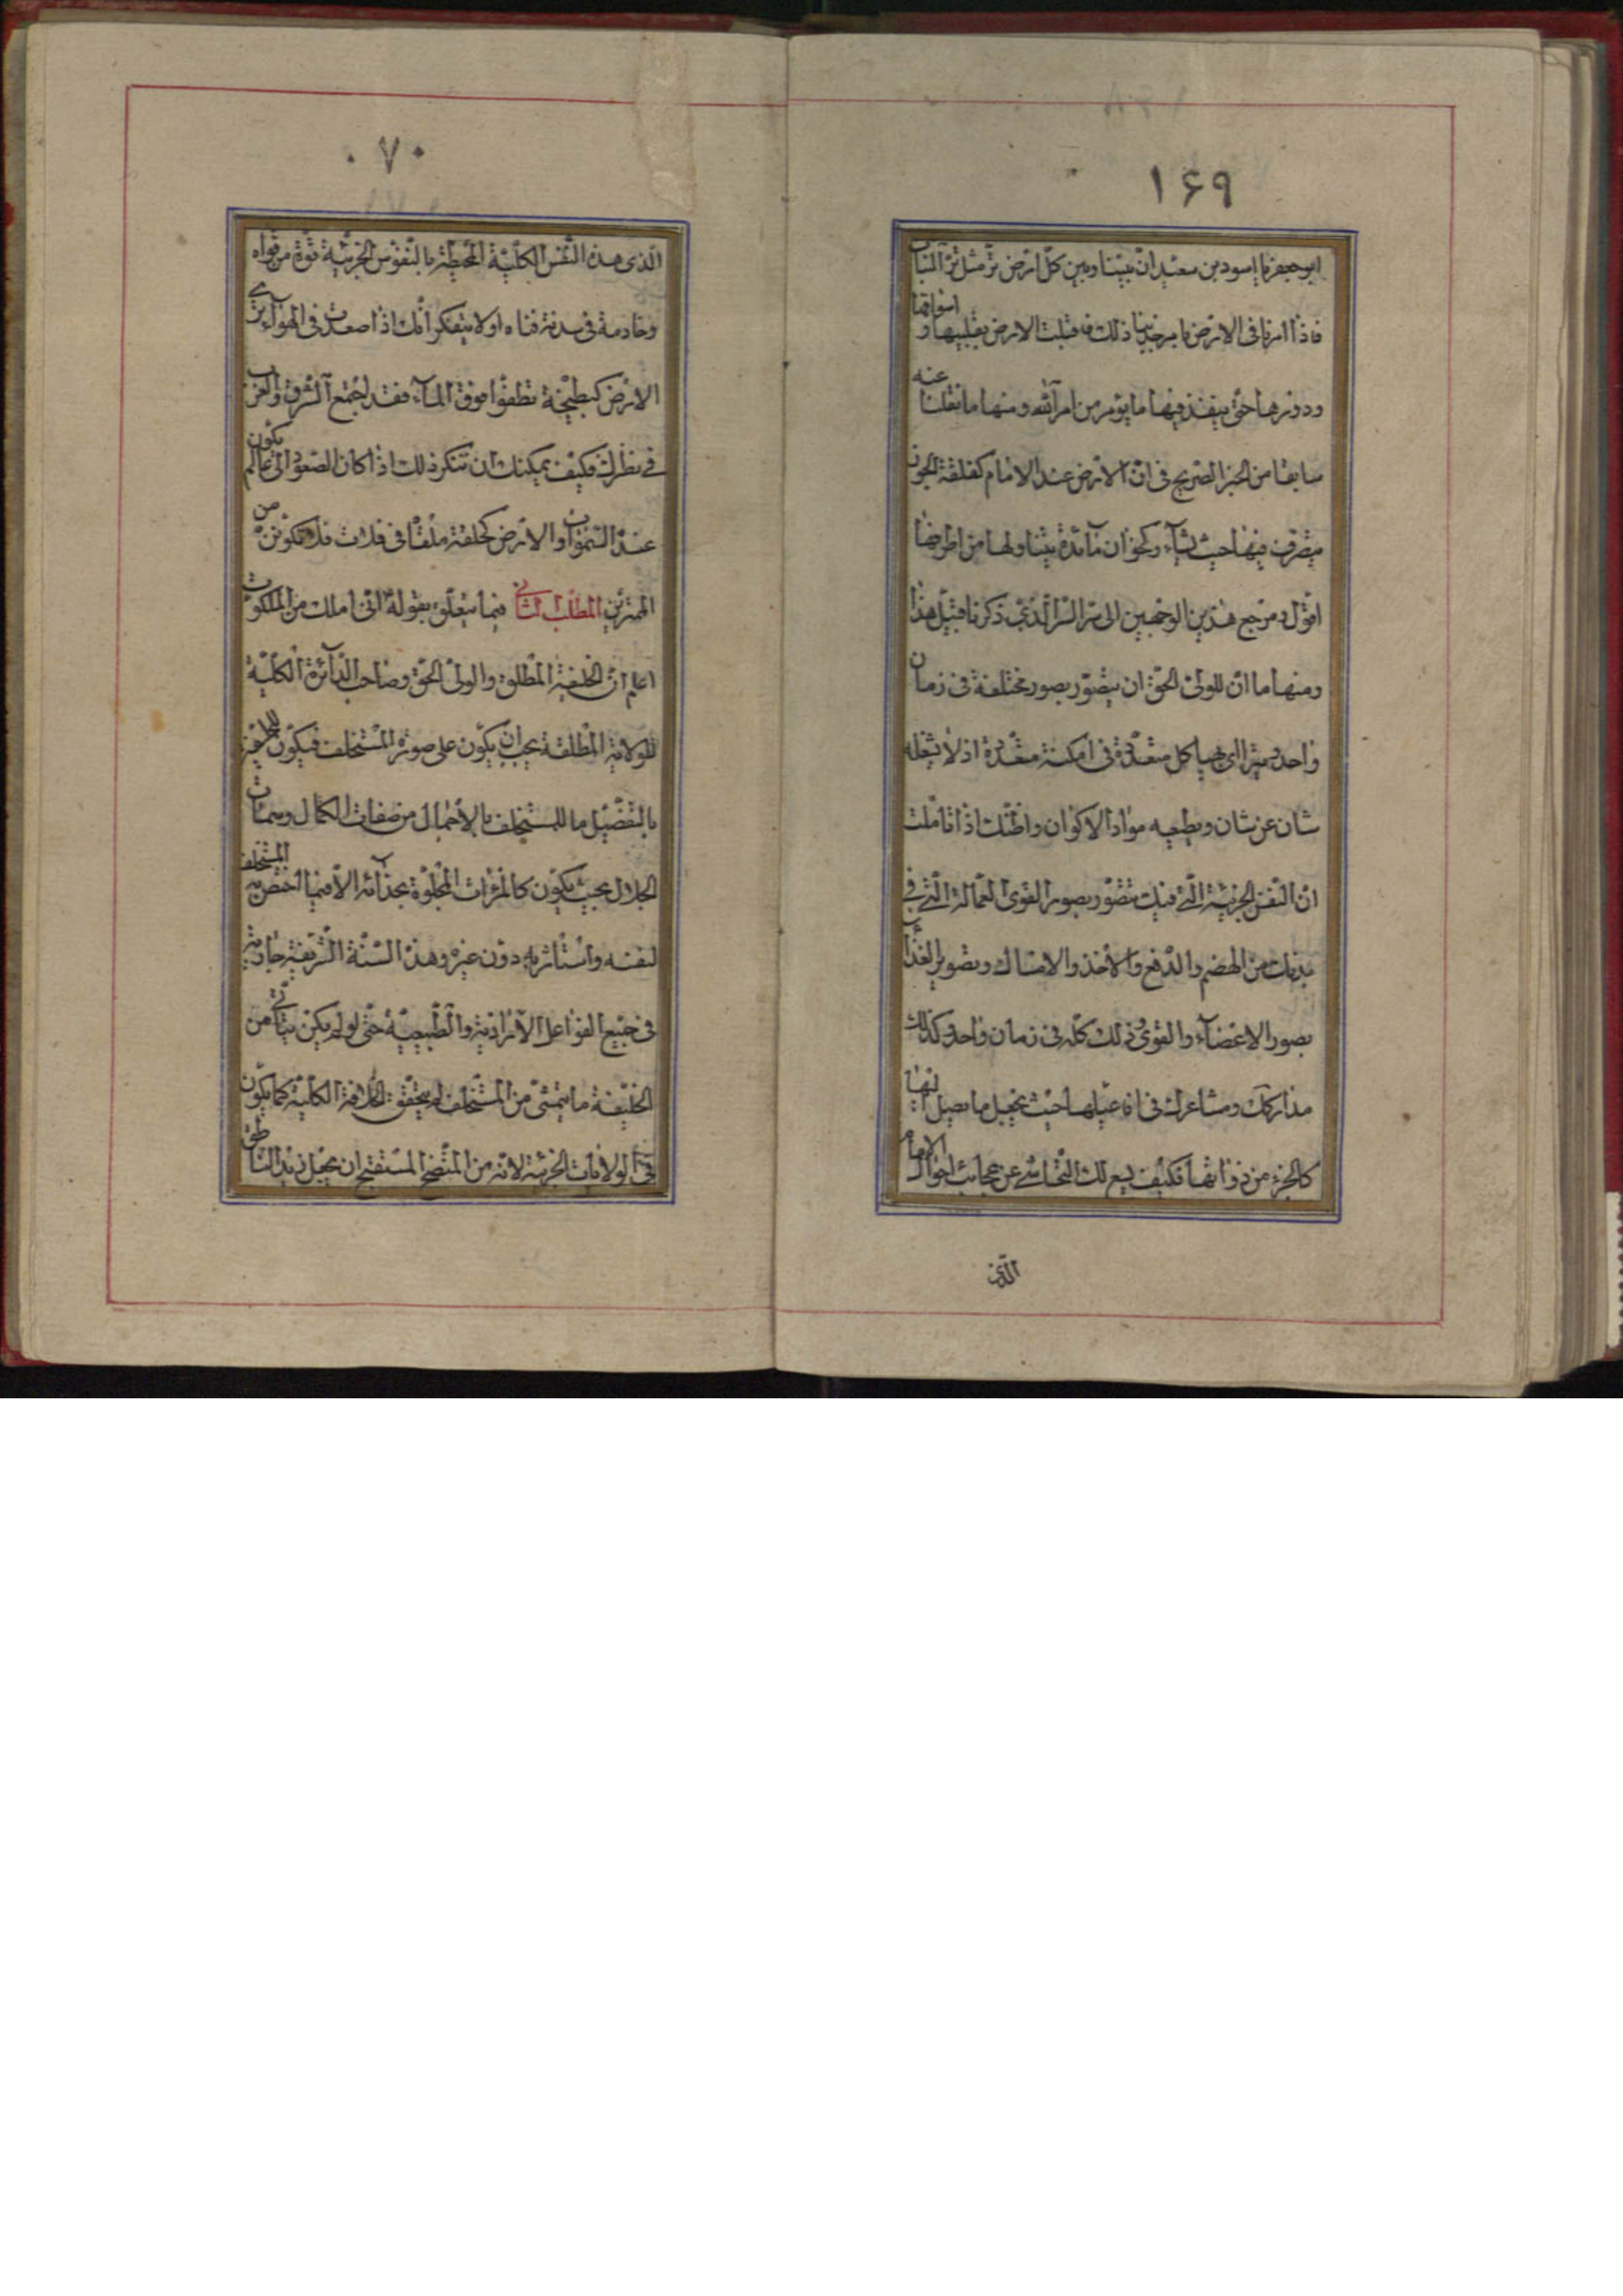 ۱۶۹
ابو جعفر يا اسود بن سعيد ان بيننا وبين كل ارض تر مثل تر البناء
فاذا امرنا فى الارض بامر جذبنا ذلك فاقبلت الارض بقليبها و اسواقها
ودورها حتى ينفذ فيها ما يؤمر من امر الله ومنها ما نقلنا عنه
سابقا من الخبر الصريح فى ان الارض عند الامام كفلقة الجوز
يتصرف فيها حيث يشاء وكخوان مائدة يتناولها من اطرافها
اقول ومرجع هذين الوجهين الى سر السر الذى ذكرنا قبيل هذا
ومنها ما ان للولى الحق ان يتصور بصور مختلفة فى زمان
واحد و يترااى بهياكل متعددة فى امكنة متعددة اذ لا يشغله
شان عن شان ويطيعه مواد الاكوان واظنك اذا تاملت
ان النفس الجزئية التى فيك تتصور بصور القوى العمالة التى فى
بدنك من الهضم والدفع والاخذ والامساك وتصوير الغذاء
بصور الاعضاء والقوى وذلك كله فى زمان واحد وكذلك
مداركك ومشاعرك فى افاعيلها حيث يجعل ما يصل اليها
كالجزء من ذواتها فكيف يسع لك التحاشى عن عجائب احوال الامام
الذى
۷۰
الذى هذه النفس الكلية المحيطة بالنفوس الجزئية قوة من قواه
وخادمة فى سدنة فناه اولا يتفكر انك اذا صعدت فى الهواء يرى
الارض كبطيخة تطفوا فوق الماء فقد اجتمع الشرق والغرب
فى نظرك فكيف يمكنك ان تنكر ذلك اذا كان الصعود الى عالم يكون
عند السموات والارض كحلقة ملقاة فى فلات فلا تكونن من
الممترين المطلب الثانى فيما يتعلق بقوله انى املك من الملكوت
اعلم ان الخليفة المطلق والولى الحق وصاحب الدائرة الكلية
للولاية المطلقة يجب ان يكون على صورة المستخلف فيكون للخليفة
بالتفضيل ما للمستخلف بالاجمال من صفات الكمال وسمات
الجلال بحيث يكون كالمرات المجلوة بحذائه الا فيما اختص به المستخلف
لنفسه واستاثر به دون غيره وهذه السنة الشريفة جارية
فى جميع الفواعل الارادية والطبيعية حتى لو لم يكن يتاتى من
الخليفة ما يتمشى من المستخلف لم يتحقق الخلافة الكلية كما يكون
فى الولايات الجزئية لانه من المتضح المستقبح ان يجعل زيد الناطق